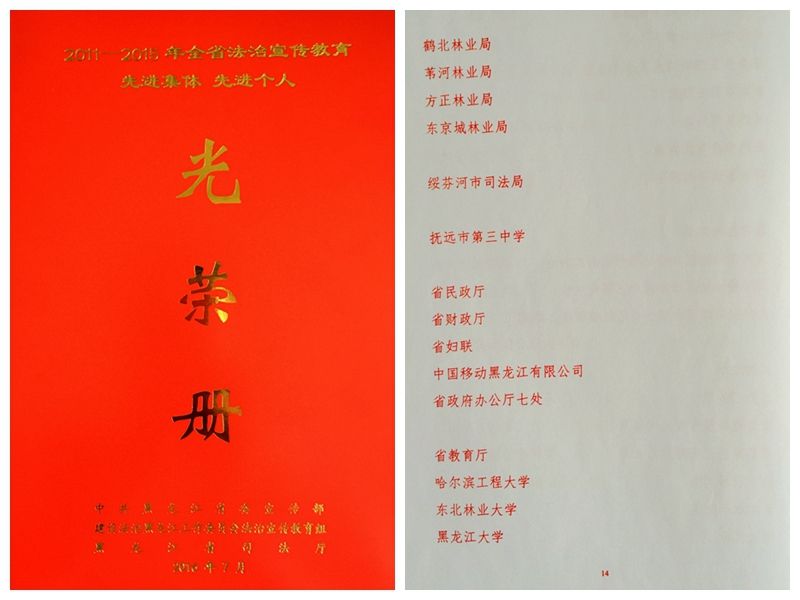 2011—2015年全省法治宣传教育
先进集体 先进个人
光
荣
册
中共黑龙江省委宣传部
建设法治黑龙江工作委员会法治宣传教育组
黑龙江省司法厅
2016年7月
鹤北林业局
苇河林业局
方正林业局
东京城林业局
绥芬河市司法局
抚远市第三中学
省民政厅
省财政厅
省妇联
中国移动黑龙江有限公司
省政府办公厅七处
省教育厅
哈尔滨工程大学
东北林业大学
黑龙江大学
14